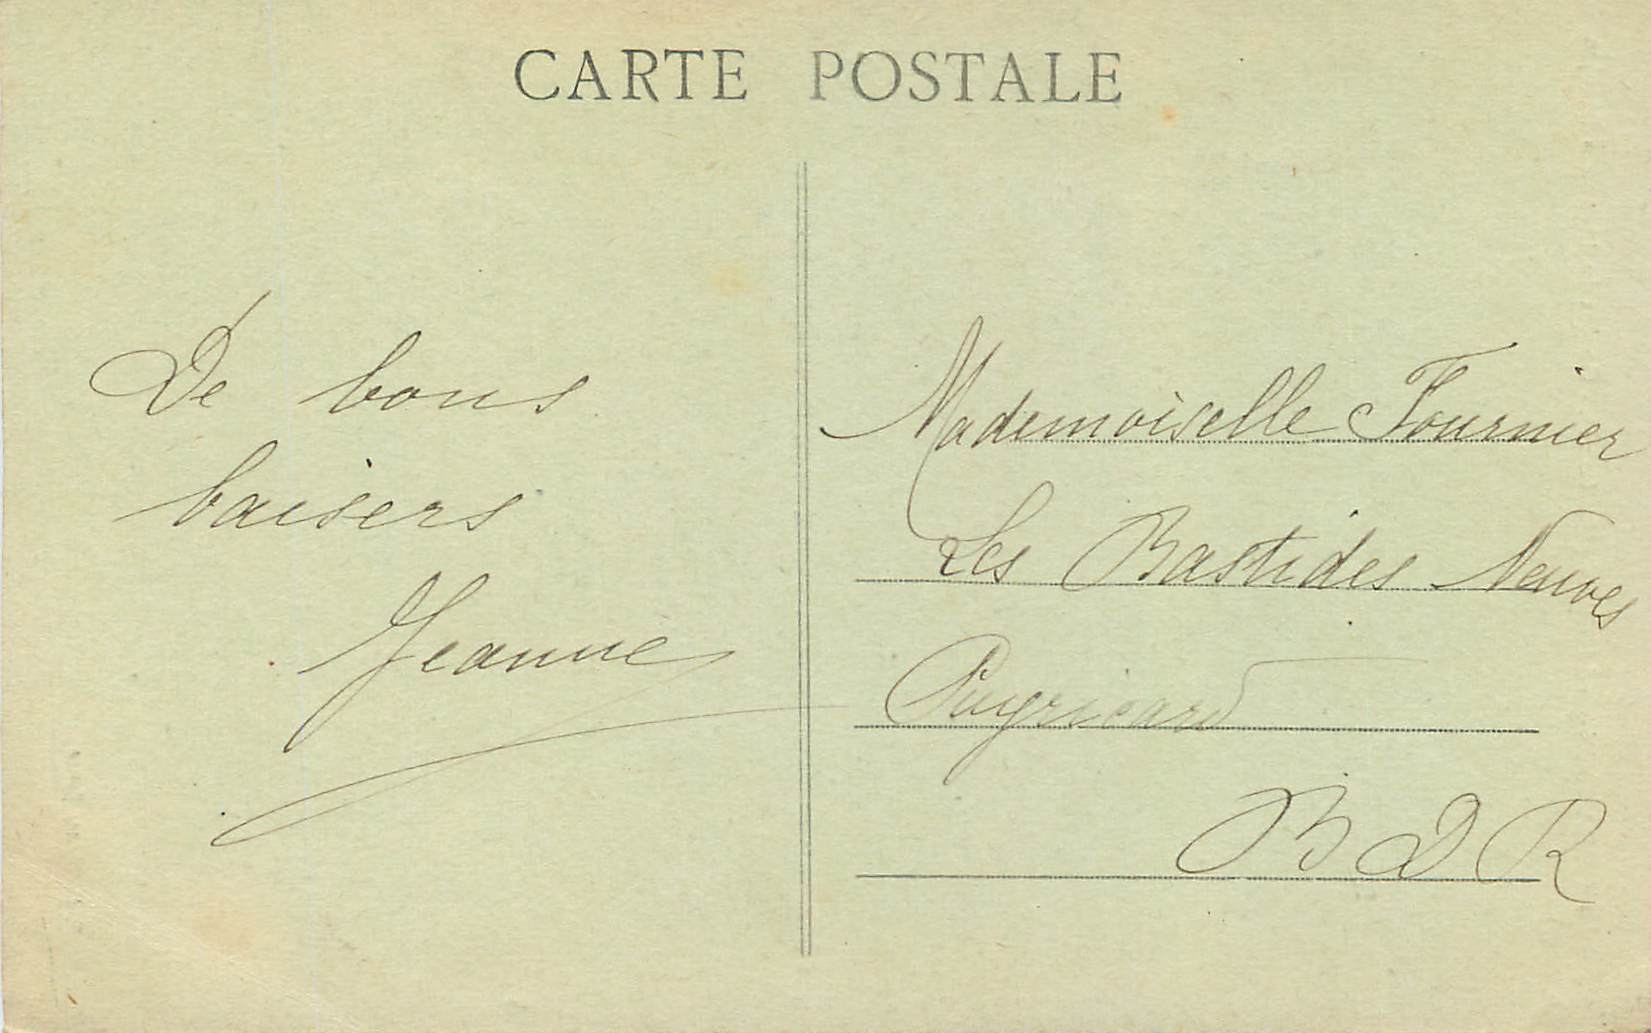 CARTE POSTALE
De bons
baisers
Jeanne
Mademoiselle Fournier
Les Bastides Neuves
Puyricard
B D R